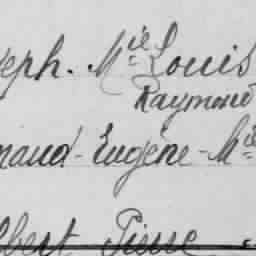 eph. M^ie Louis
Raymond
naud - Eugène - M^ie
lbert Pierre